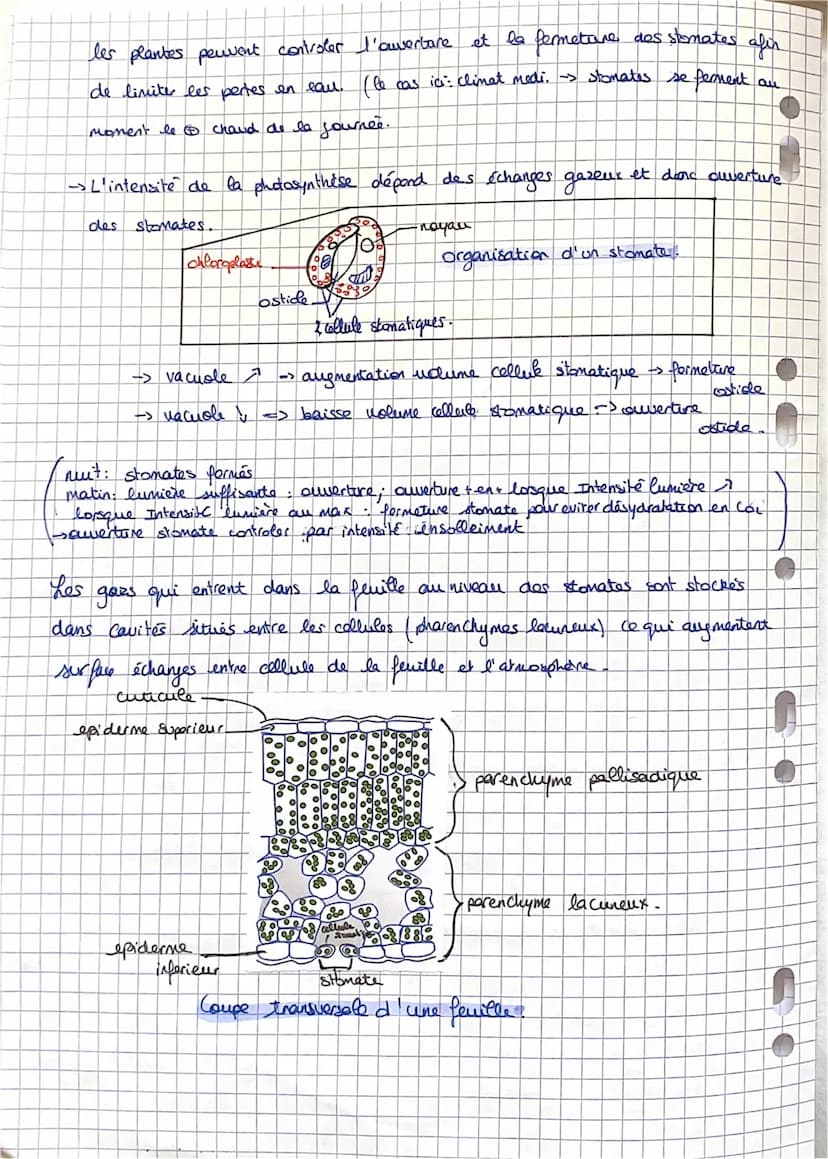 les plantes peuvent controler l'ouverture et la fermeture des stomates afin
de limiter les pertes en eau. (le cas ici: climat medi. → stomates se ferment au
moment le ⊕ chaud de la journée.
→ L'intensité de la photosynthèse dépend des échanges gazeux et donc ouverture
des stomates.
noyau
chloroplaste
organisation d'un stomate.
ostide
2 cellule stomatiques.
→ vacuole ↗ → augmentation volume cellule stomatique → fermeture
ostide
→ vacuole ↓ => baisse volume cellule stomatique → ouverture
ostide.
nuit: stomates fermés
matin: lumière suffisante: ouverture; ouverture + en + lorsque Intensité lumière ↗
lorsque Intensité lumière au max: fermeture stomate pour eviter désydratation en
→ ouverture stomate controler par intensité
Les gazs qui entrent dans la feuille au niveau des stomates sont stockés
dans cavités situés entre les cellules (pharenchymes lacuneux) ce qui augmentent
surface échanges entre cellule de la feuille et l'atmosphère.
cuticule
epiderme superieur
parenchyme pallisadique
parenchyme lacuneux.
cellule
epiderme
inferieur
stomate
Coupe transversale d'une feuille.